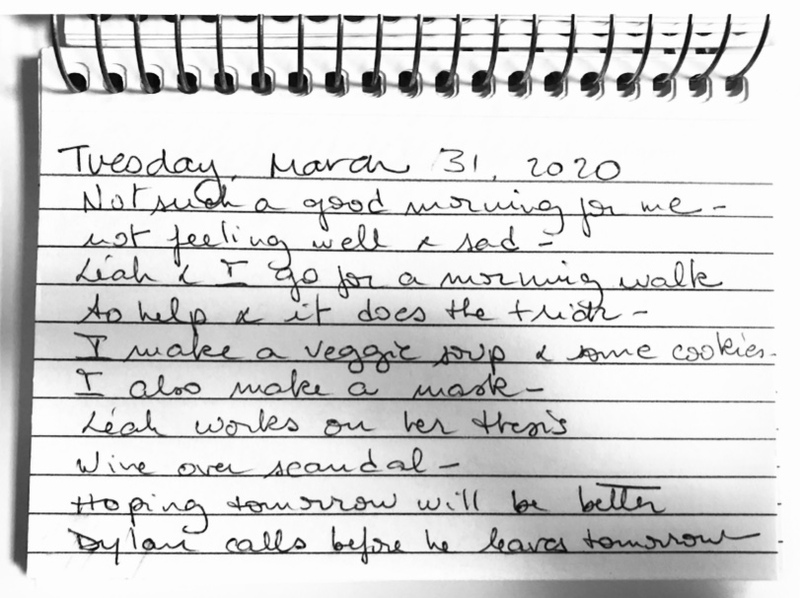 Tuesday, March 31, 2020
Not such a good morning for me -
not feeling well & sad -
Léah & I go for a morning walk
to help & it does the trick -
I make a veggie soup & some cookies -
I also make a mask -
Léah works on her thesis
Wine over scandal -
Hoping tomorrow will be better
Dylan calls before he leaves tomorrow -